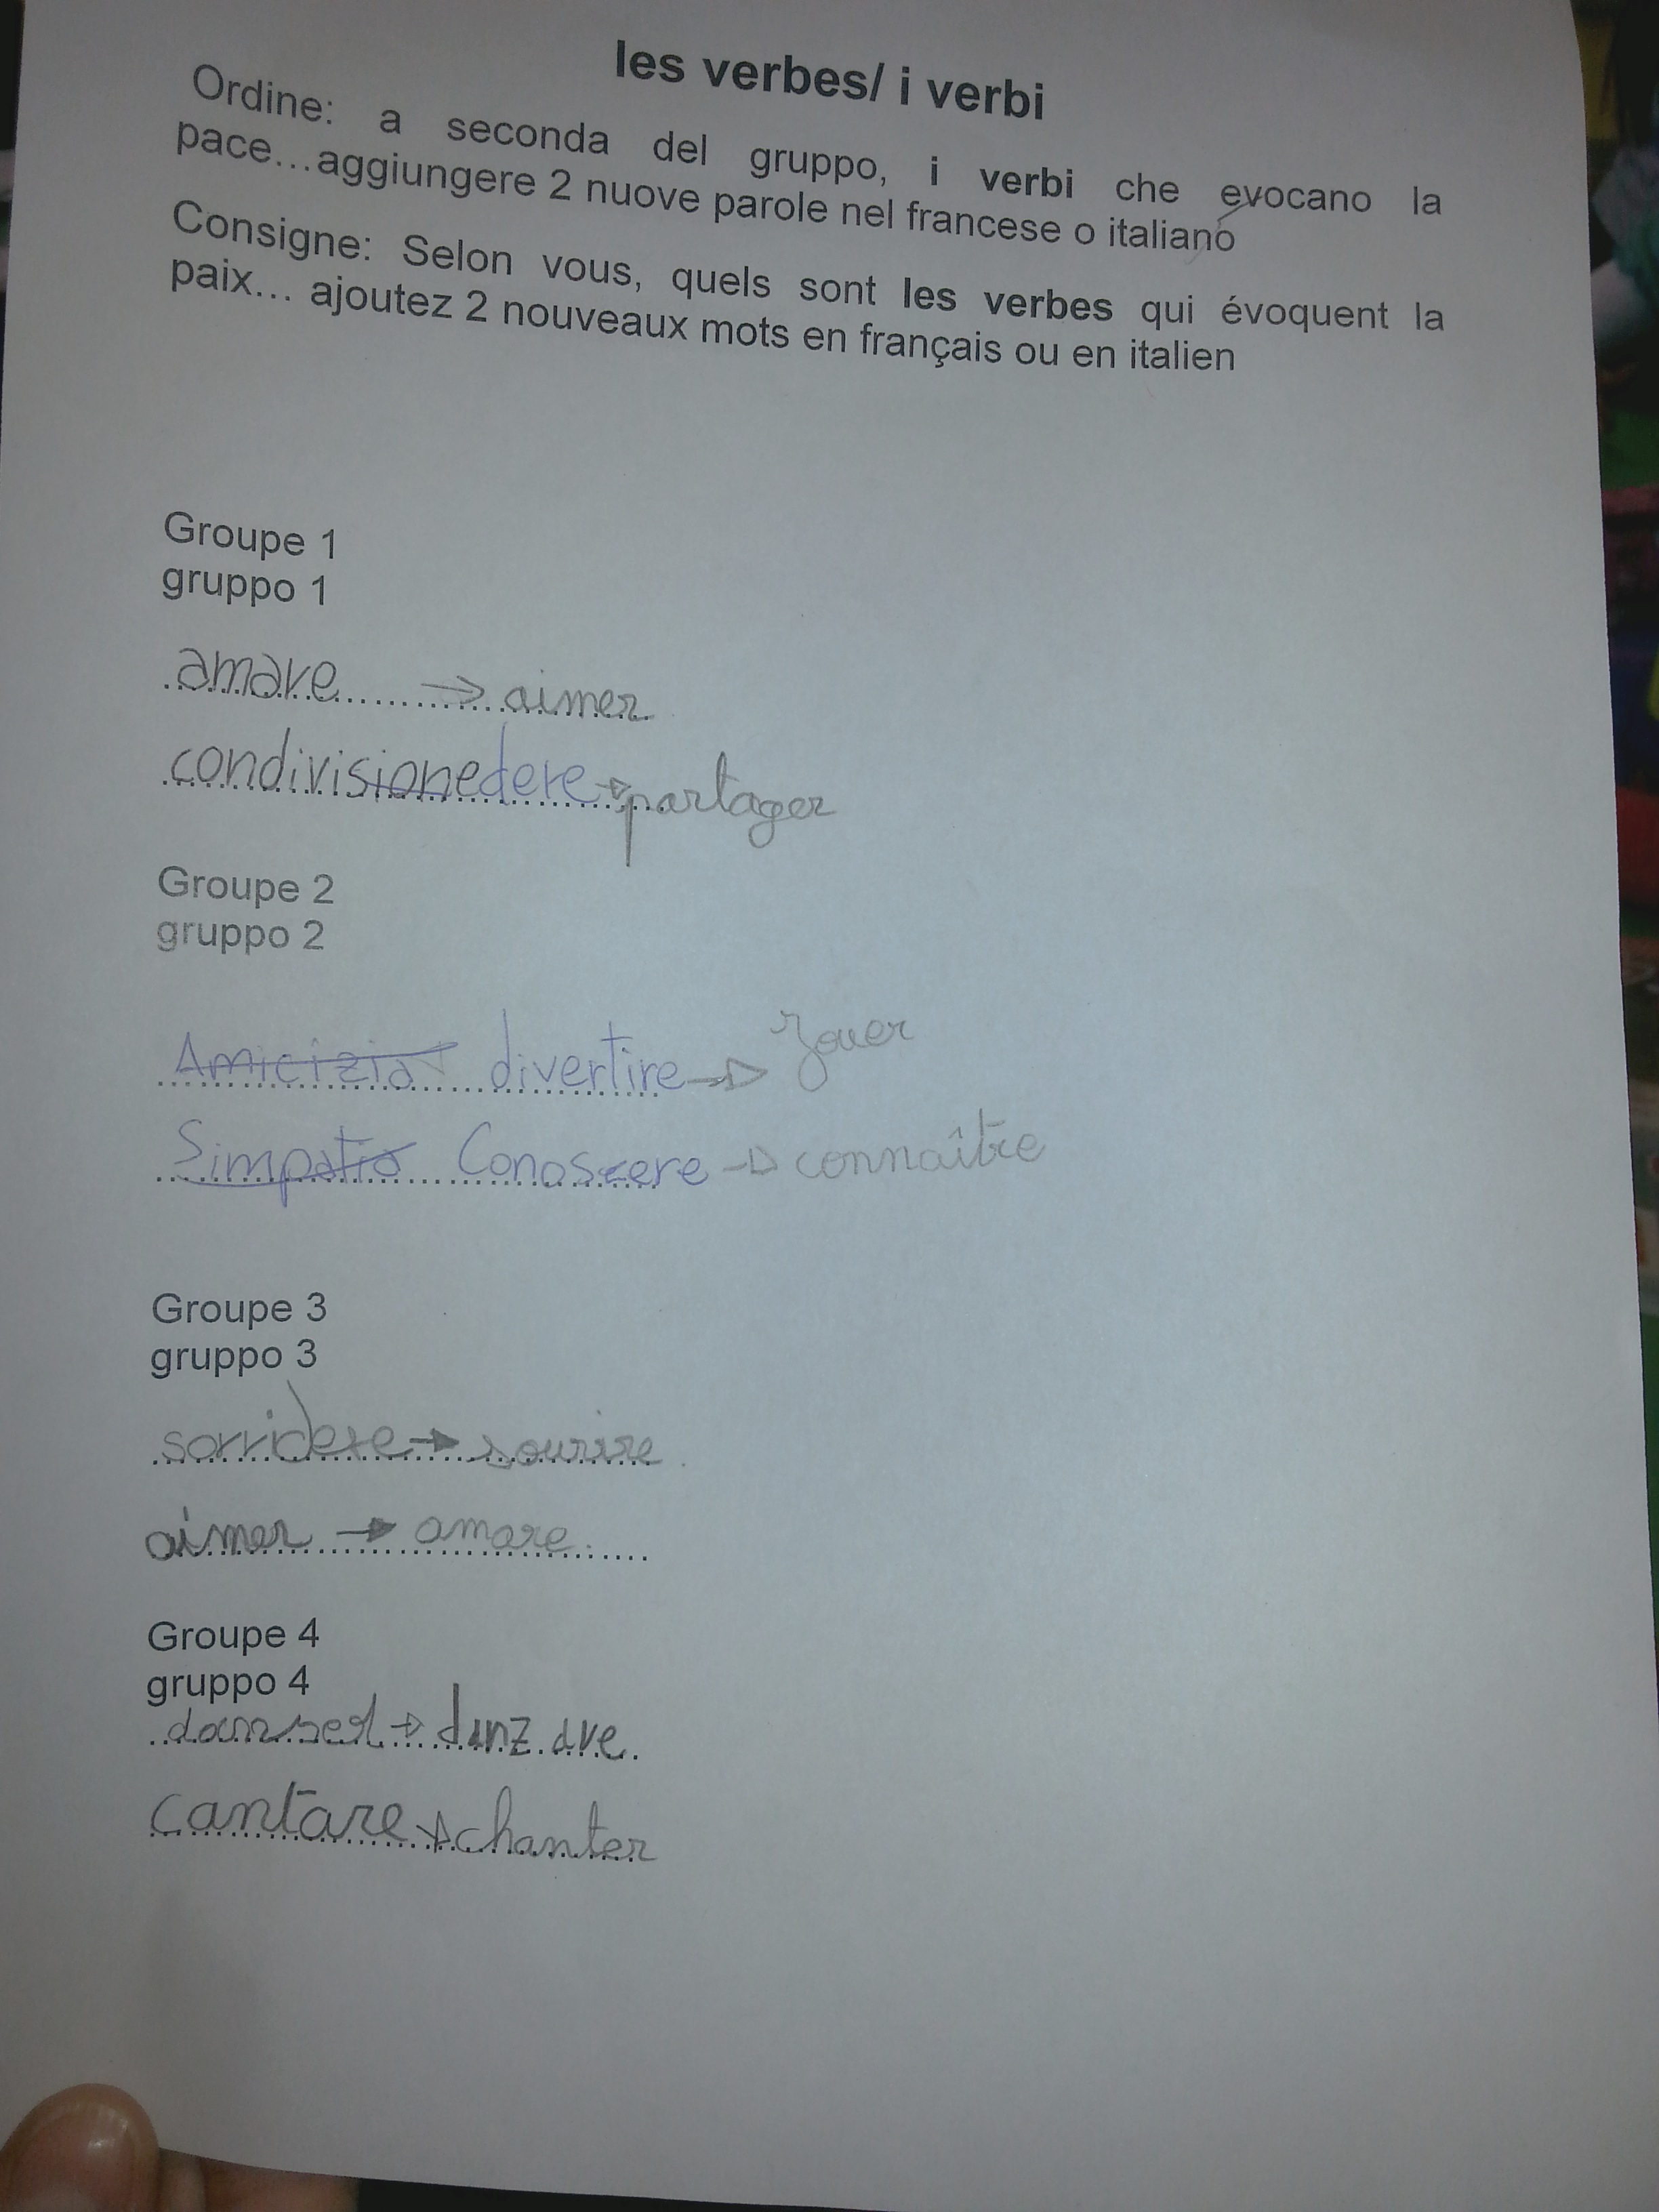 les verbes/ i verbi
Ordine: a seconda del gruppo, i verbi che evocano la
pace...aggiungere 2 nuove parole nel francese o italiano
Consigne: Selon vous, quels sont les verbes qui évoquent la
paix... ajoutez 2 nouveaux mots en français ou en italien
Groupe 1
gruppo 1
amare → aimer
condivisionedere → partager
Groupe 2
gruppo 2
Amicizia divertire → Jouer
Simpatia Conoscere → connaître
Groupe 3
gruppo 3
sorridere → sourire
aimer → amare
Groupe 4
gruppo 4
danser → danzare
cantare → chanter